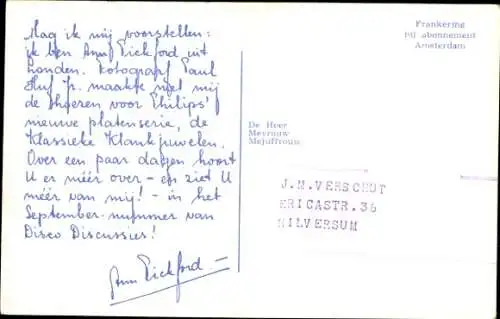 Mag ik mij voorstellen:
ik ben Ann Pickford uit
Londen. Fotograaf Paul
Huf Jr. maakte met mij
de hoezen voor Philips'
nieuwe platenserie, de
Klassieke Klankjuwelen.
Over een paar dagen hoort
U er méér over - en ziet U
méér van mij! - in het
September-nummer van
Disco Discussies!
Ann Pickford -
Frankering
bij abonnement
Amsterdam
De Heer
Mevrouw
Mejuffrouw
J.M.VERSCHUT
ERICASTR.36
HILVERSUM